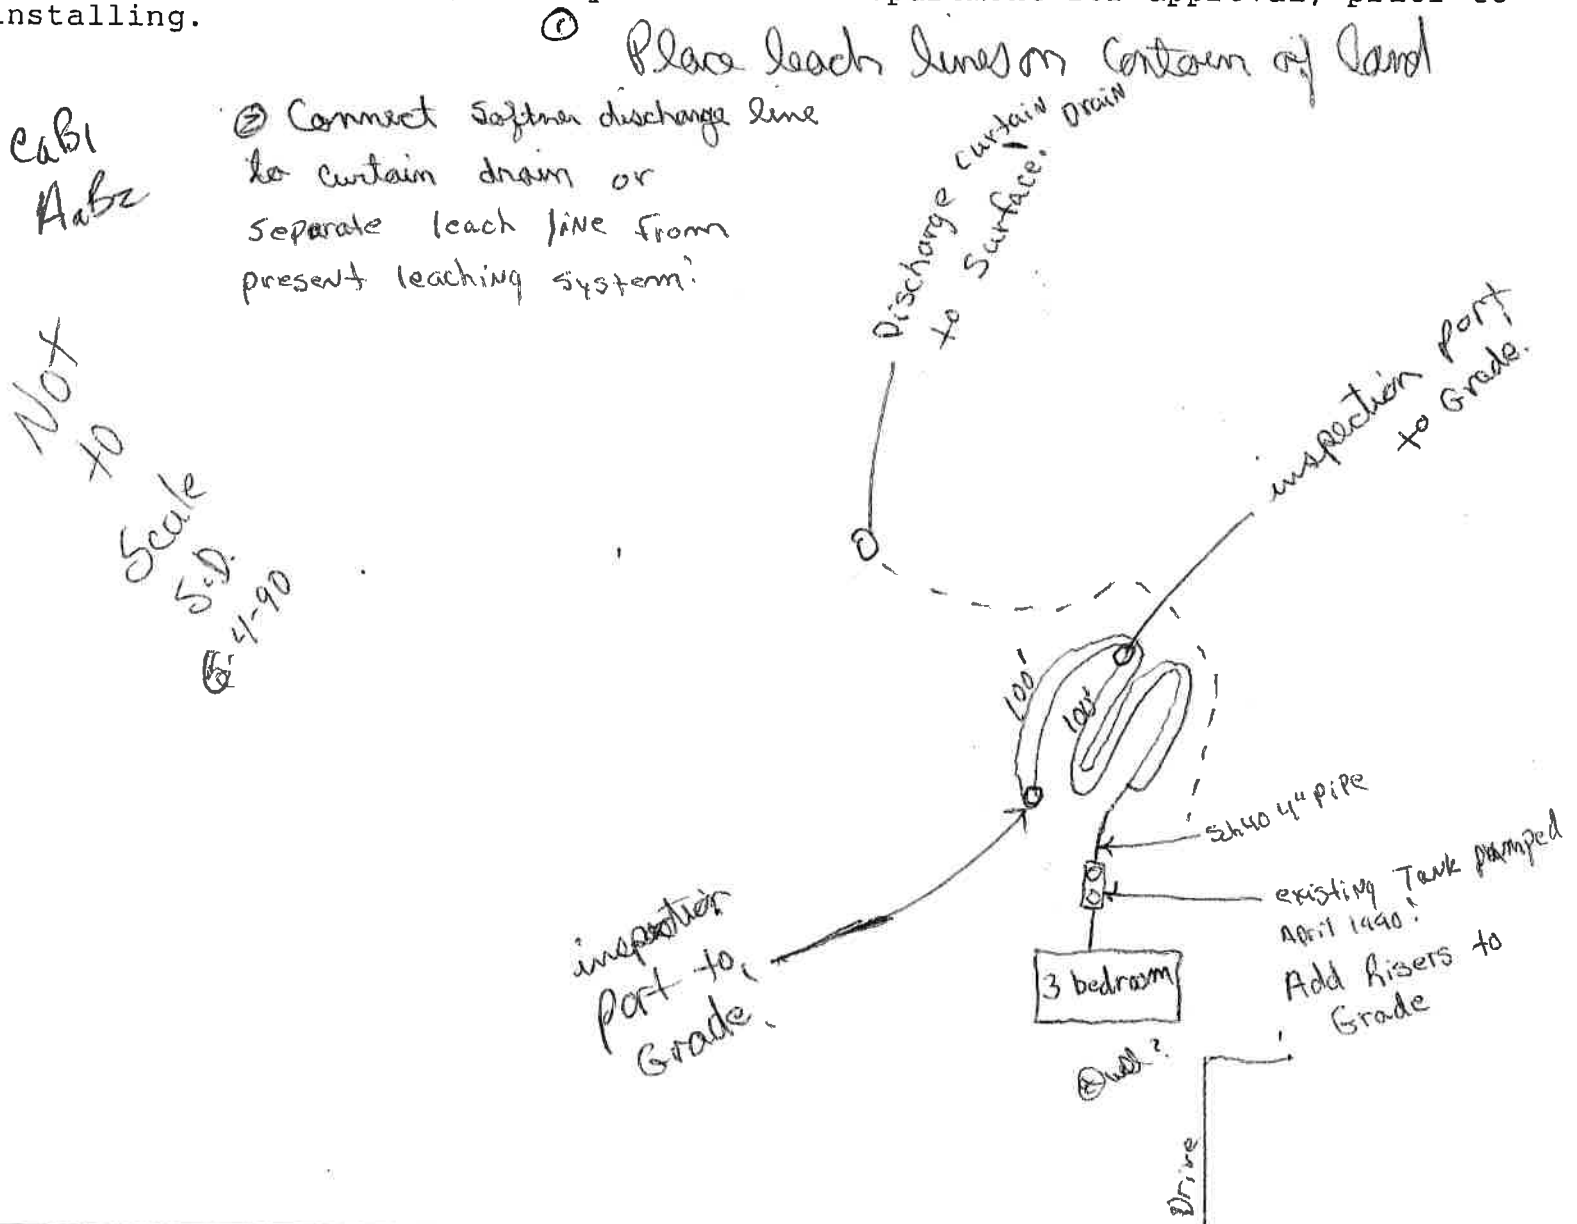 for approval, prior to
installing.
① Place leach lines on Contour of land
CaB1
AaB2
② Connect Softner discharge line
to curtain drain or
separate leach line from
present leaching system.
Discharge Curtain Drain
to Surface.
Not
to
Scale
S.D.
6-4-90
inspection port
to Grade.
100'
100'
Sch 40 4" pipe
existing Tank pumped
April 1990.
Add Risers to
Grade
inspection
Port to
Grade.
3 bedroom
well?
Drive